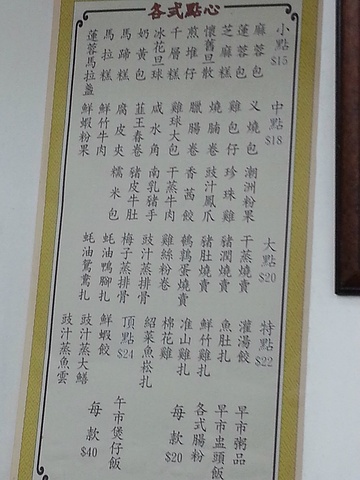 各式點心
小點
$15
麻蓉包
蓮蓉包
芝麻糕
懷舊旦散
煎堆仔
千層糕
冰花旦球
奶黃包
馬蹄糕
馬拉糕
蓮蓉馬拉盞
中點
$18
义燒包
雞包仔
燒腩卷
臘腸卷
雞球大包
咸水角
韮王春卷
腐皮夾
鮮竹牛肉
鮮蝦粉果
潮洲粉果
珍珠雞
豉汁鳳爪
香茜餃
干蒸牛肉
南乳豬手
豬皮牛肚
糯米包
大點
$20
干蒸燒賣
豬潤燒賣
豬肚燒賣
鵪鶉蛋燒賣
雞絲粉卷
豉汁蒸排骨
梅子蒸排骨
蚝油鴨腳扎
蚝油鴛鴦扎
特點
$22
灌湯餃
魚肚扎
鮮竹雞扎
准山雞扎
棉花雞
紹菜魚崧扎
頂點
$24
鮮蝦餃
豉汁蒸大鱔
豉汁蒸魚雲
早市粥品
早市盅頭飯
各式腸粉
每款
$20
午市煲仔飯
每款
$40